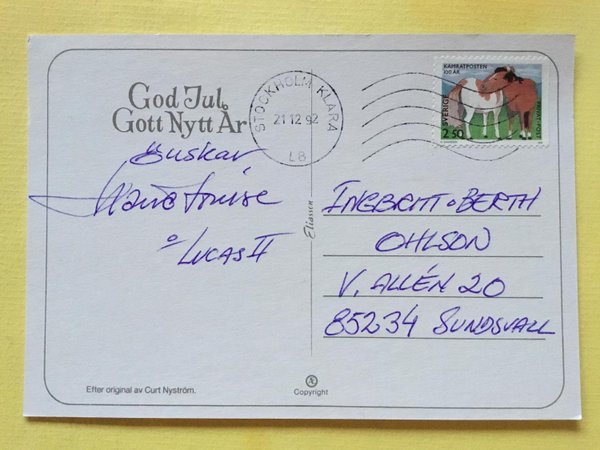 God Jul
Gott Nytt År
önskar
Marie Louise
o Lucas II
STOCKHOLM KLARA
21 12 92
LB
KAMRATPOSTEN
100 ÅR
SVERIGE
2.50
Eliasson
INGBRITT o BERTH
OHLSON
V. ALLÉN 20
85234 SUNDSVALL
Efter original av Curt Nyström.
Copyright